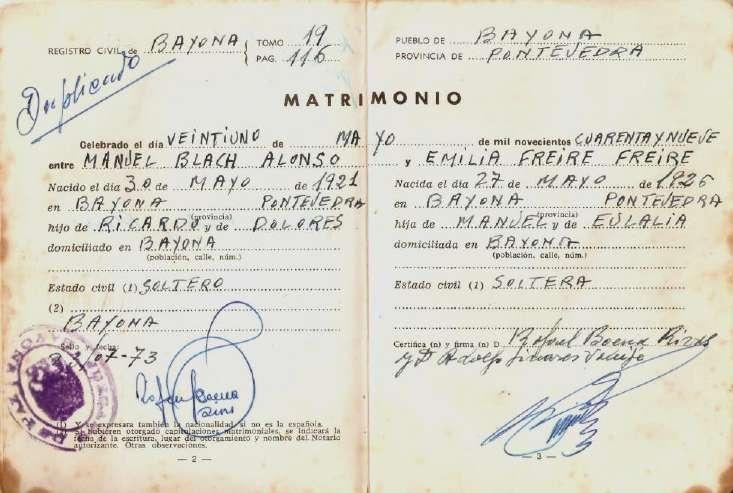 REGISTRO CIVIL de BAYONA TOMO 19
PAG. 116
Duplicado
PUEBLO DE BAYONA
PROVINCIA DE PONTEVEDRA
MATRIMONIO
Celebrado el día VEINTIUNO de MAYO de mil novecientos CUARENTA Y NUEVE
entre MANUEL BLACH ALONSO y EMILIA FREIRE FREIRE
Nacido el día 30 de MAYO de 1921
en BAYONA PONTEVEDRA
(provincia)
hijo de RICARDO y de DOLORES
domiciliado en BAYONA
(población, calle, núm.)
Estado civil (1) SOLTERO
(2)
BAYONA
Sello y fecha:
07-73
Rafael Baena
(1) Y se expresara también la nacionalidad si no es la española.
se hubieren otorgado capitulaciones matrimoniales, se indicará la
fecha de la escritura, lugar del otorgamiento y nombre del Notario
autorizante. Otras observaciones.
— 2 —
Nacida el día 27 de MAYO de 1926
en BAYONA PONTEVEDRA
(provincia)
hija de MANUEL y de EULALIA
domiciliada en BAYONA
(población, calle, núm.)
Estado civil (1) SOLTERA
Certifica (n) y firma (n) D Rafael Baena
y D. Adolfo
— 3 —